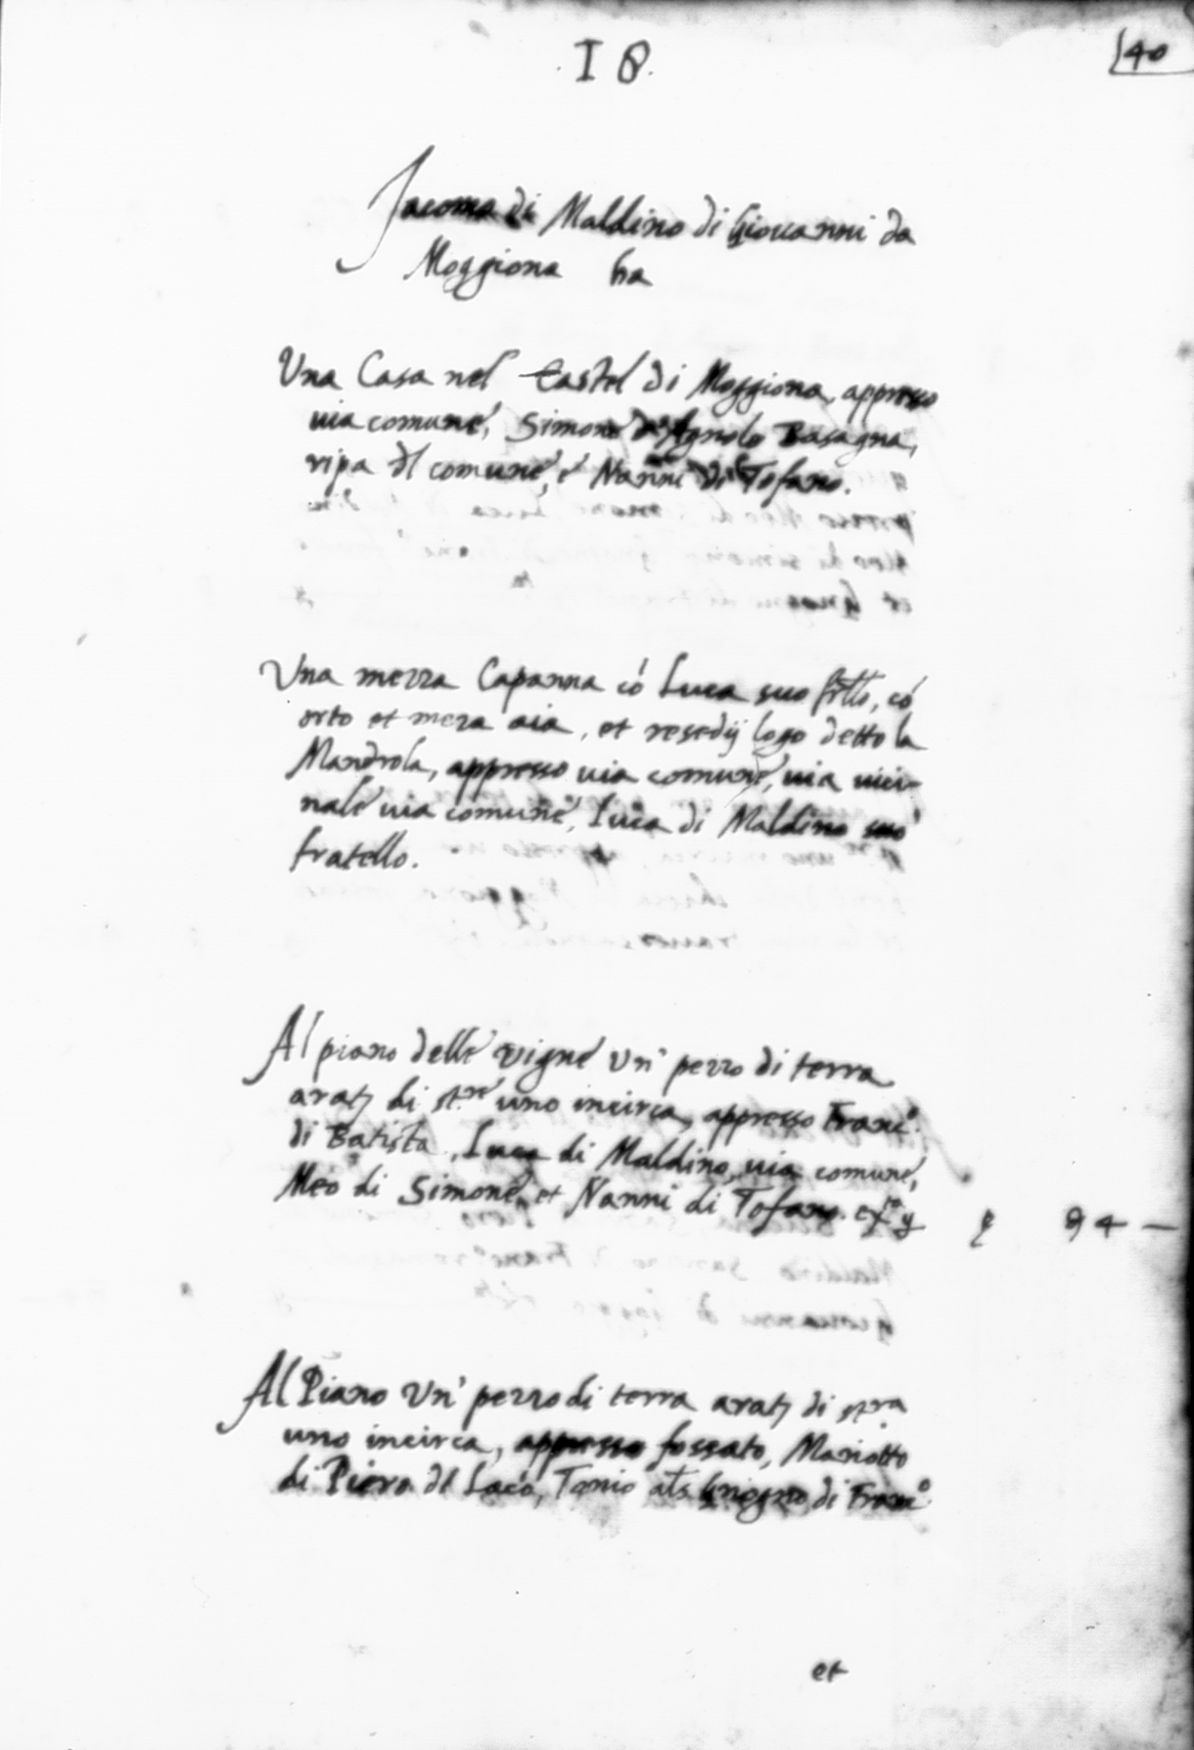 18.
40
Jacoma di Maldino di Giovanni da
Moggiona ha
Una Casa nel Castel di Moggiona, appresso
via comune, Simone d'Agnolo Basagna,
ripa dl comune, e Nanni di Tofano.
Una mezza Capanna cō Luca suo frĩlo, cō
orto et meza aia, et resedij logo detto la
Mandrola, appresso via comune, via vici-
nale via comune, Luca di Maldino suo
fratello.
Al piano delle vigne un' pezzo di terra
di st.re uno incirca, appresso Franc.o
di Batista, Luca di Maldino, via comune,
Meo di Simone, et Nanni di Tofano.
94 —
Al Piano un' pezzo di terra di st.ra
uno incirca, appresso fossato, Mariotto
di Piero dl Laco, Tonio als di Franc.o
et